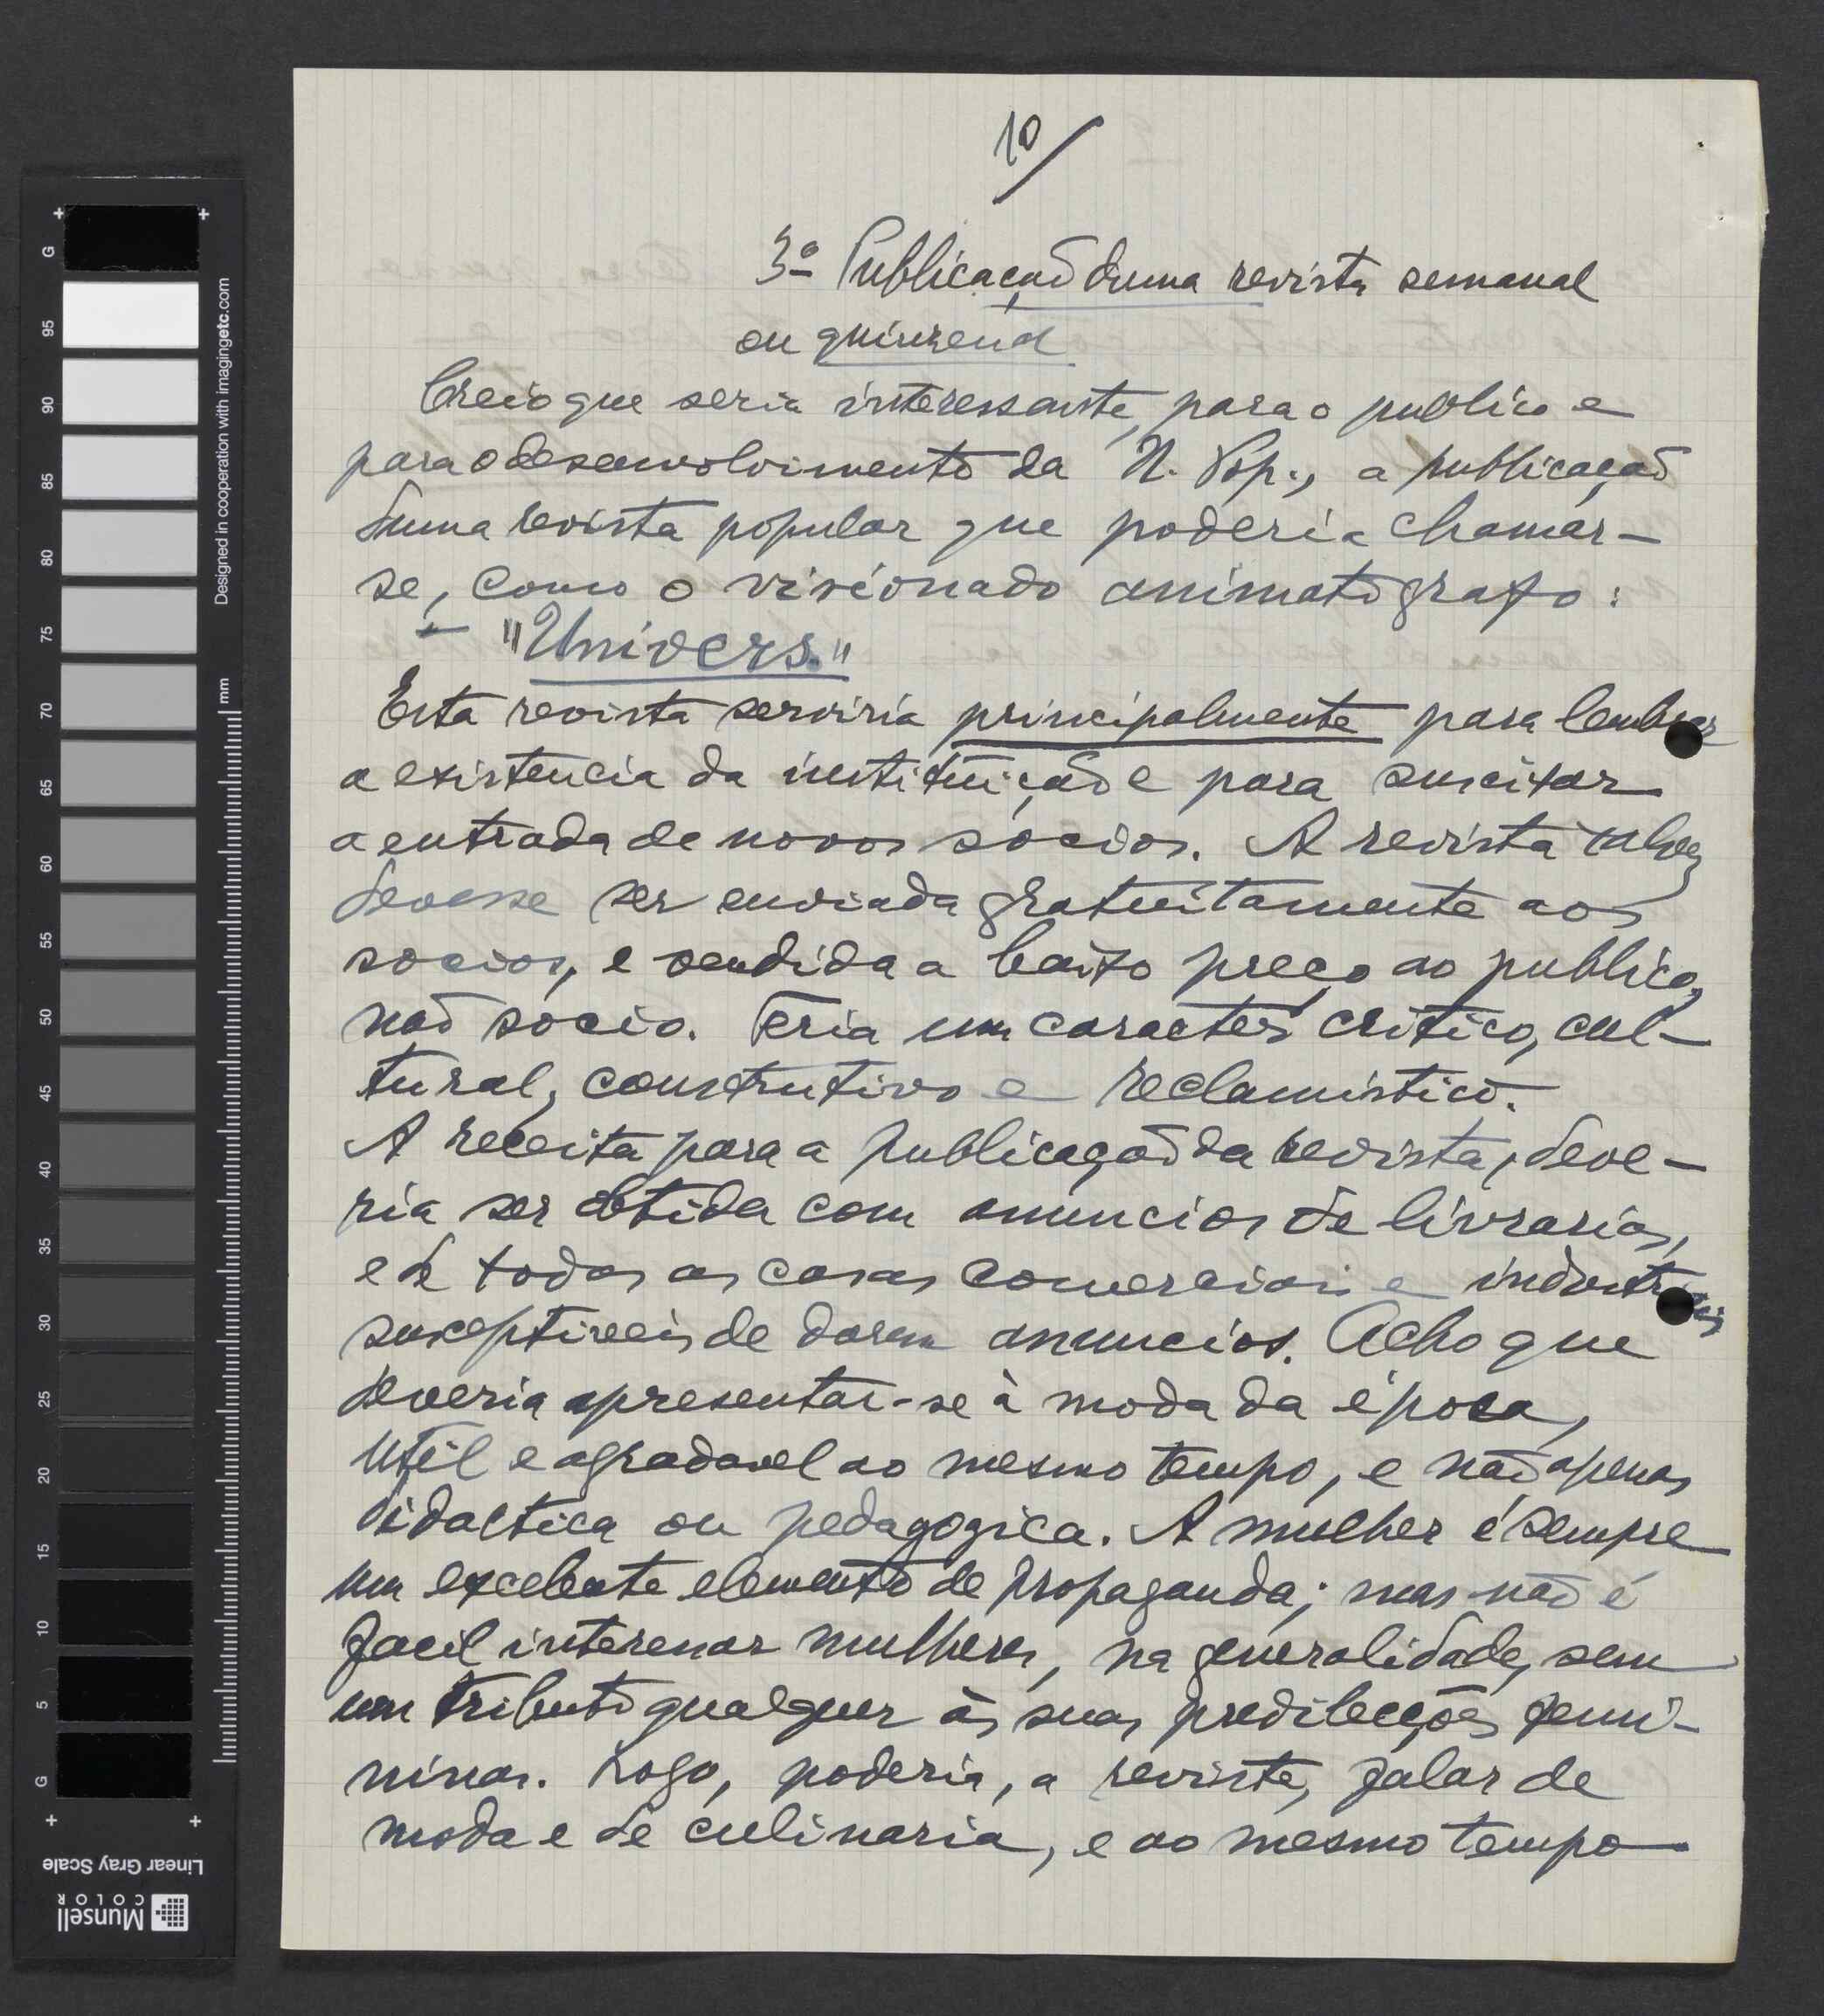 10/
3º Publicação duma revista semanal
ou quinzenal
Creio que seria interessante, para o publico e
para o desenvolvimento da U. Pop., a publicação
duma revista popular que poderia chamar-
se, como o visionado animatografo:
— "Univers."
Esta revista serviria principalmente para lembrar
a existencia da instituição e para suscitar
a entrada de novos socios. A revista talvez
devesse ser enviada gratuitamente aos
socios, e vendida a baixo preço ao publico,
não socio. Teria um caracter critico, cul-
tural, construtivo e reclamistico.
A receita para a publicação da revista, deve-
ria ser obtida com anuncios de livrarias,
e de todas as casas comerciais e industriais
susceptiveis de darem anuncios. Acho que
deveria apresentar-se à moda da época,
util e agradavel ao mesmo tempo, e não apenas
didactica ou pedagogica. A mulher é sempre
um excelente elemento de propaganda; mas não é
facil interessar mulheres, na generalidade, sem
um tributo qualquer às suas predilecções femi-
ninas. Logo, poderia, a revista, falar de
moda e de culinaria, e ao mesmo tempo
G 95 90 85 80 75 70 65 60 55 50 45 40 35 30 25 20 15 10 5 G
Designed in cooperation with imagingetc.com
mm
Linear Gray Scale
Munsell
COLOR